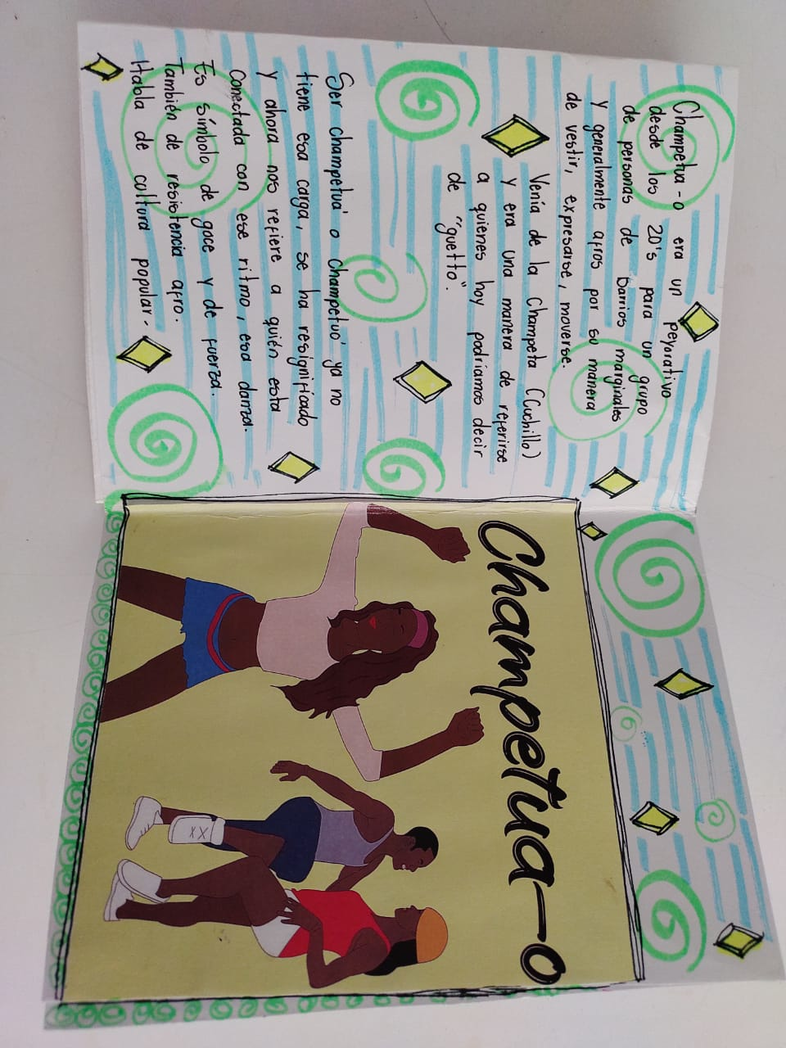 Champetua-o era un peyorativo
desde los 20's para un grupo
de personas de barrios marginales
y generalmente afros por su manera
de vestir, expresarse, moverse.
Venía de la Champeta (Cuchillo)
y era una manera de referirse
a quienes hoy podríamos decir
de "guetto".
Ser champetua' o champetuo' ya no
tiene esa carga, se ha resignificado
y ahora nos refiere a quién esta
Conectada con ese ritmo, esa danza.
Es símbolo de goce y de fuerza.
También de resistencia afro.
Habla de cultura popular.
Champetua-o